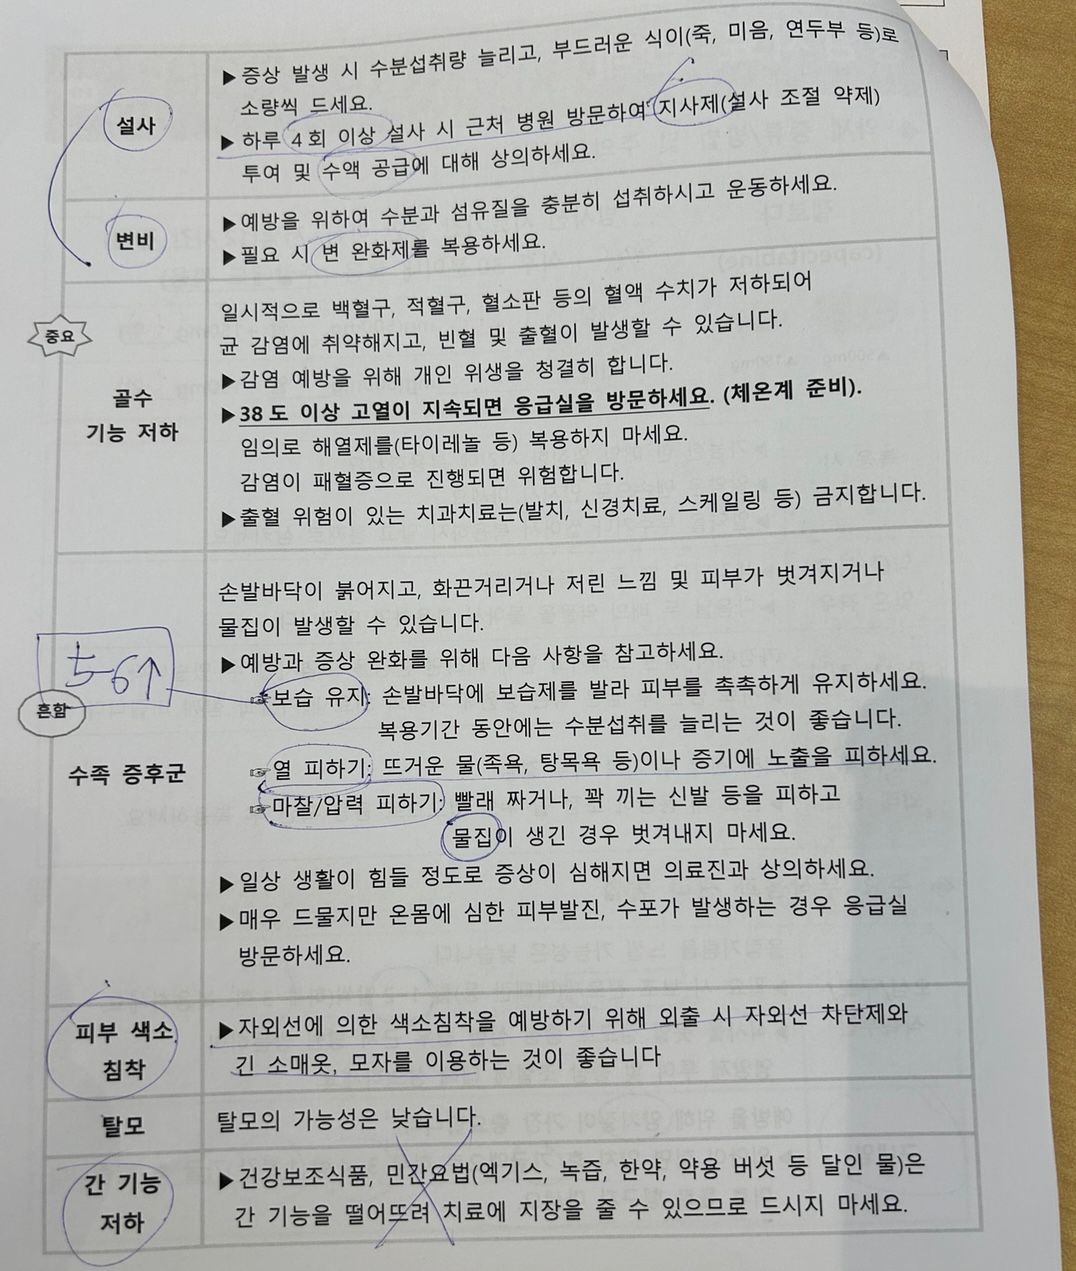 설사
▶증상 발생 시 수분섭취량 늘리고, 부드러운 식이(죽, 미음, 연두부 등)로
소량씩 드세요.
▶하루 4회 이상 설사 시 근처 병원 방문하여 지사제(설사 조절 약제)
투여 및 수액 공급에 대해 상의하세요.
변비
▶예방을 위하여 수분과 섬유질을 충분히 섭취하시고 운동하세요.
▶필요 시 변 완화제를 복용하세요.
중요
골수
기능 저하
일시적으로 백혈구, 적혈구, 혈소판 등의 혈액 수치가 저하되어
균 감염에 취약해지고, 빈혈 및 출혈이 발생할 수 있습니다.
▶감염 예방을 위해 개인 위생을 청결히 합니다.
▶38도 이상 고열이 지속되면 응급실을 방문하세요. (체온계 준비).
임의로 해열제를(타이레놀 등) 복용하지 마세요.
감염이 패혈증으로 진행되면 위험합니다.
▶출혈 위험이 있는 치과치료는(발치, 신경치료, 스케일링 등) 금지합니다.
5-6↑
흔함
수족 증후군
손발바닥이 붉어지고, 화끈거리거나 저린 느낌 및 피부가 벗겨지거나
물집이 발생할 수 있습니다.
▶예방과 증상 완화를 위해 다음 사항을 참고하세요.
☞보습 유지: 손발바닥에 보습제를 발라 피부를 촉촉하게 유지하세요.
복용기간 동안에는 수분섭취를 늘리는 것이 좋습니다.
☞열 피하기: 뜨거운 물(족욕, 탕목욕 등)이나 증기에 노출을 피하세요.
☞마찰/압력 피하기: 빨래 짜거나, 꽉 끼는 신발 등을 피하고
물집이 생긴 경우 벗겨내지 마세요.
▶일상 생활이 힘들 정도로 증상이 심해지면 의료진과 상의하세요.
▶매우 드물지만 온몸에 심한 피부발진, 수포가 발생하는 경우 응급실
방문하세요.
피부 색소
침착
▶자외선에 의한 색소침착을 예방하기 위해 외출 시 자외선 차단제와
긴 소매옷, 모자를 이용하는 것이 좋습니다
탈모
탈모의 가능성은 낮습니다.
간 기능
저하
▶건강보조식품, 민간요법(엑기스, 녹즙, 한약, 약용 버섯 등 달인 물)은
간 기능을 떨어뜨려 치료에 지장을 줄 수 있으므로 드시지 마세요.